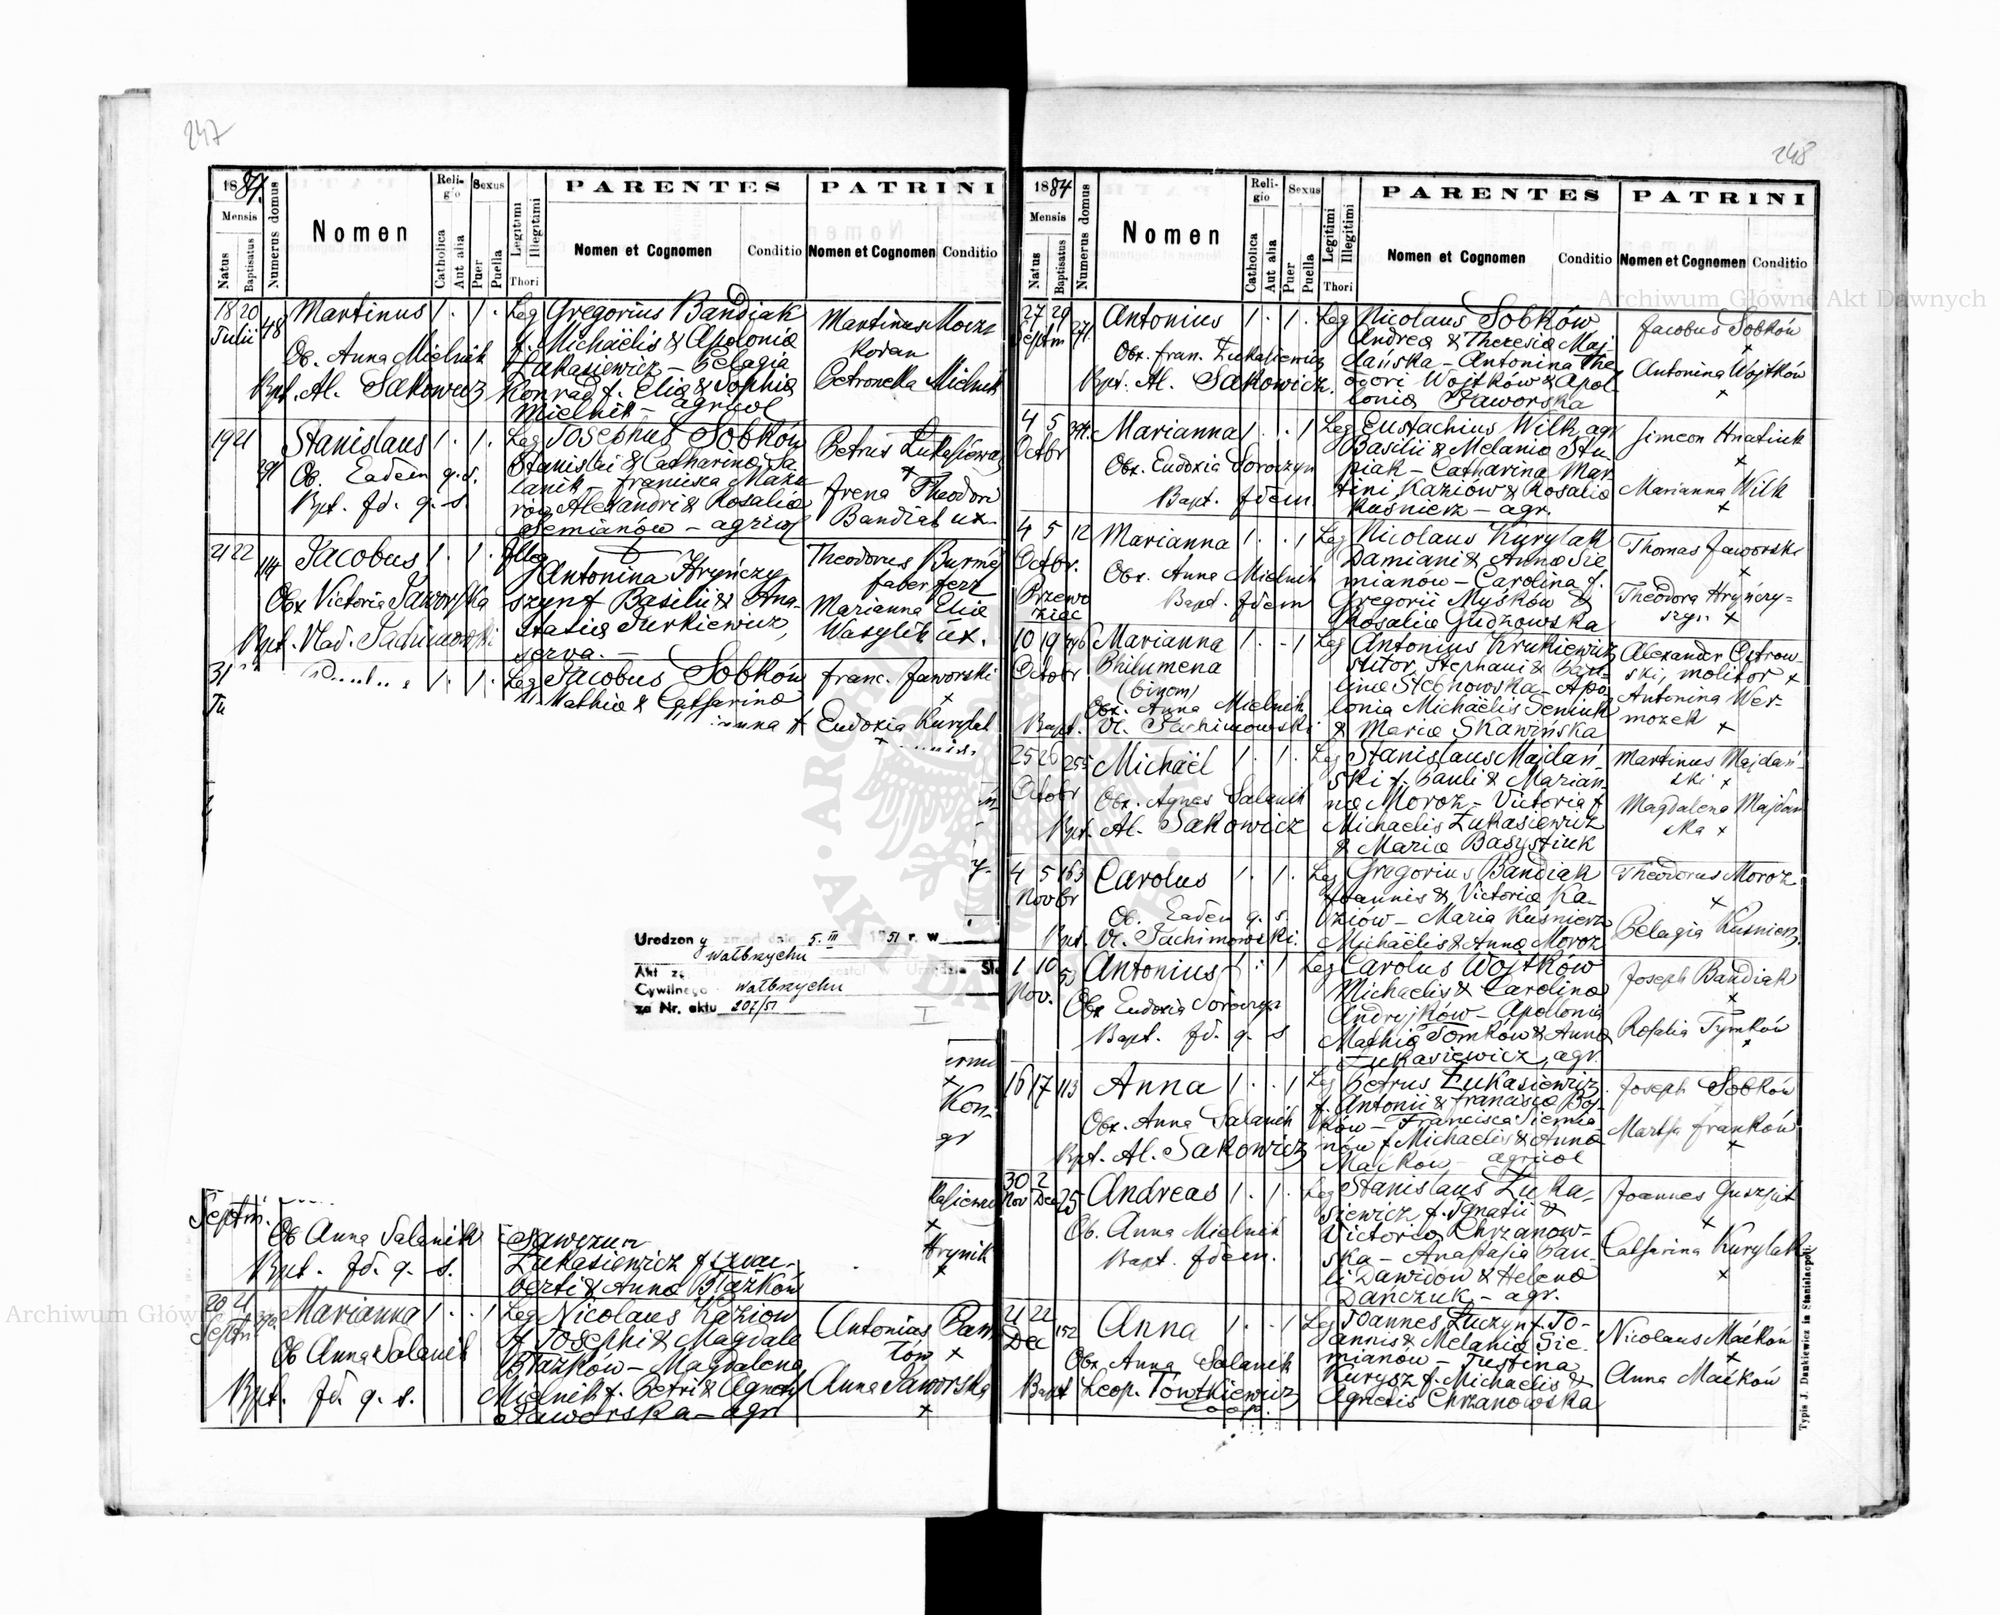 247
1884.
Mensis
Natus
Baptisatus
Numerus domus
Nomen
Religio
Catholica
Aut alia
Sexus
Puer
Puella
Legitimi
Illegitimi
Thori
PARENTES
Nomen et Cognomen
Conditio
PATRINI
Nomen et Cognomen
Conditio
18 20 Julii 48
Martinus 1 . 1 .
Ob. Anna Mielnik
Bpt. Al. Sakowicz
Leg Gregorius Bandiak
f. Michaëlis & Apolonia
Łukasiewicz – Pelagia
Konrad f. Elia & Sophia
Mielnik – agricol
Martinus
Petronella Mielnik
19 21
Stanislaus 1 . 1 .
Ob. Eadem q. s.
Bpt. fd. q. s.
Leg Josephus Sobków
Stanislai & Catharina Sa-
lanik – Francisca
Alexandri & Rosalia
Siemianów – agricol
Petrus Łukasiewicz
+
Irena Theodori
Bandiak ux.
21 22 114
Jacobus 1 . 1 .
Obx Victoria Jaworska
Bpt. Vlad. Tachimowski
Illeg
Antonina Hryńczy
szyn f Basilii & Ana-
stasia Turkiewicz,
serva. –
Theodorus
faber ferr
Marianna Elia
Wasylik ux.
31
1 . 1 .
Leg Jacobus Sobków
Mathia & Catharina
Franc. Jaworski
+
Eudoxia Kurylak
+
Urodzony zmarł dnia 5. III 1951 r. w
Wałbrzychu
Akt
Cywilnego Wałbrzychu
za Nr. aktu 207/51
I
Kon-
gr
Hrynik
+
Septm.
Ob Anna Salanik
Bpt. fd. q. s.
Łukasiewicz f
berti & Anna Błażków
20 21
Septm
Marianna 1 . . 1
Ob Anna Salanik
Bpt. fd. q. s.
Leg Nicolaus Kaziow
f Josephi & Magdale
Błażków – Magdalena
Mielnik f. Petri & Agnety
Jaworska – agr
Antonius
+
Anna Jaworska
+
248
1884
Mensis
Natus
Baptisatus
Numerus domus
Nomen
Religio
Catholica
Aut alia
Sexus
Puer
Puella
Legitimi
Illegitimi
Thori
PARENTES
Nomen et Cognomen
Conditio
PATRINI
Nomen et Cognomen
Conditio
27 29 Septm 271
Antonius 1 . 1 .
Obx. fran. Łukasiewicz
Bpt. Al. Sakowicz.
Leg Nicolaus Sobków
Andrea & Theresia Maj-
dańska – Antonina The-
odori Wojtków & Apol-
lonia Jaworska
Jacobus Sobków
+
Antonina Wojtków
+
4 5 Octbr
Marianna 1 . . 1
Obx. Eudoxia Soroczyn
Bapt. fdem
Leg Eustachius Wilk, agr
Basilii & Melania Stu-
piak – Catharina Mar-
tini Kaziów & Rosalia
Kuśnierz – agr.
Simeon Hnatiuk
+
Marianna Wilk
+
4 5 12
Octbr.
Marianna 1 . . 1
Obx. Anna Mielnik
Bapt. fdem
Leg Nicolaus Kurylak
Damiani & Anna Sie
mianów – Carolina f.
Gregorii Myśków &
Rosalia Gudzowska
Thomas Jaworski
+
Theodora Hryńczy-
szyn +
10 19
Octobr
Marianna
Philumena
(binom)
1 . – 1
Obx. Anna Mielnik
Bapt. Vl. Tachimowski
Leg Antonius Krukiewicz
sutor, Stephani & Pau-
lina Stebnowska – Apo-
lonia Michaëlis Semiuk
& Maria Skawińska
Alexander Ostrow-
ski, molitor +
Antonina Wer-
mozek +
25 26 255
Octobr
Michaël 1 . 1 .
Obx. Agnes Salanik
Bpt. Al. Sakowicz
Leg Stanislaus Majdań-
ski f. Pauli & Marian-
na Moroz – Victoria f
Michaelis Łukasiewicz
& Maria Basystiuk
Martinus Majdań-
ski +
Magdalena Majdań
ska +
4 5 163
Novbr
Carolus 1 . 1 .
Ob. Eadem q. s.
Bpt. Vl. Tachimowski.
Leg Gregorius Bandiak
Joannis & Victoria Ka-
ziów – Maria Kuśnierz
Michaëlis & Anna Moroz
Theodorus Moroz
+
Pelagia Kuśnierz
1 10 53
Nov.
Antonius 1 . 1
Obx Eudoxia Soroczyn
Bapt. fd. q. s
Leg Carolus Wojtków
Michaelis & Carolina
Andrejków – Apolonia
Mathia Tomków & Anna
Łukasiewicz, agr.
Joseph Bandiak
+
Rosalia Tymków
+
16 17 113
Anna 1 . . 1
Obx. Anna Salanik
Bpt. Al. Sakowicz
Leg Petrus Łukasiewicz
f. Antonii & Francisca Boj-
ków – Francisca Siemia-
nów f Michaelis & Anna
Maćków – agricol
Joseph Sobków
Martha Franków
+
30 2
Nov Dec 25
Andreas 1 . 1 .
Ob. Anna Mielnik
Bapt. fdem.
Leg Stanislaus Łuka-
siewicz f. Ignatii &
Victoria Chrzanow-
ska – Anastasia Pau-
li Dawidów & Helena
Dańczuk – agr.
Joannes
+
Catharina Kurylak
+
21 22 152
Dec
Anna 1 . . 1
Obx. Anna Salanik
Bapt Leop. Towtkiewicz
coop.
Leg Joannes Łuczyn f. Jo-
annis & Melania Sie-
mianów – Justina
Kurysz f. Michaelis &
Agnetis Chrzanowska
Nicolaus Maćków
+
Anna Maćków
Typis J. Dankiewicz in Stanislaopoli.
Archiwum Główne Akt Dawnych
Archiwum Główne